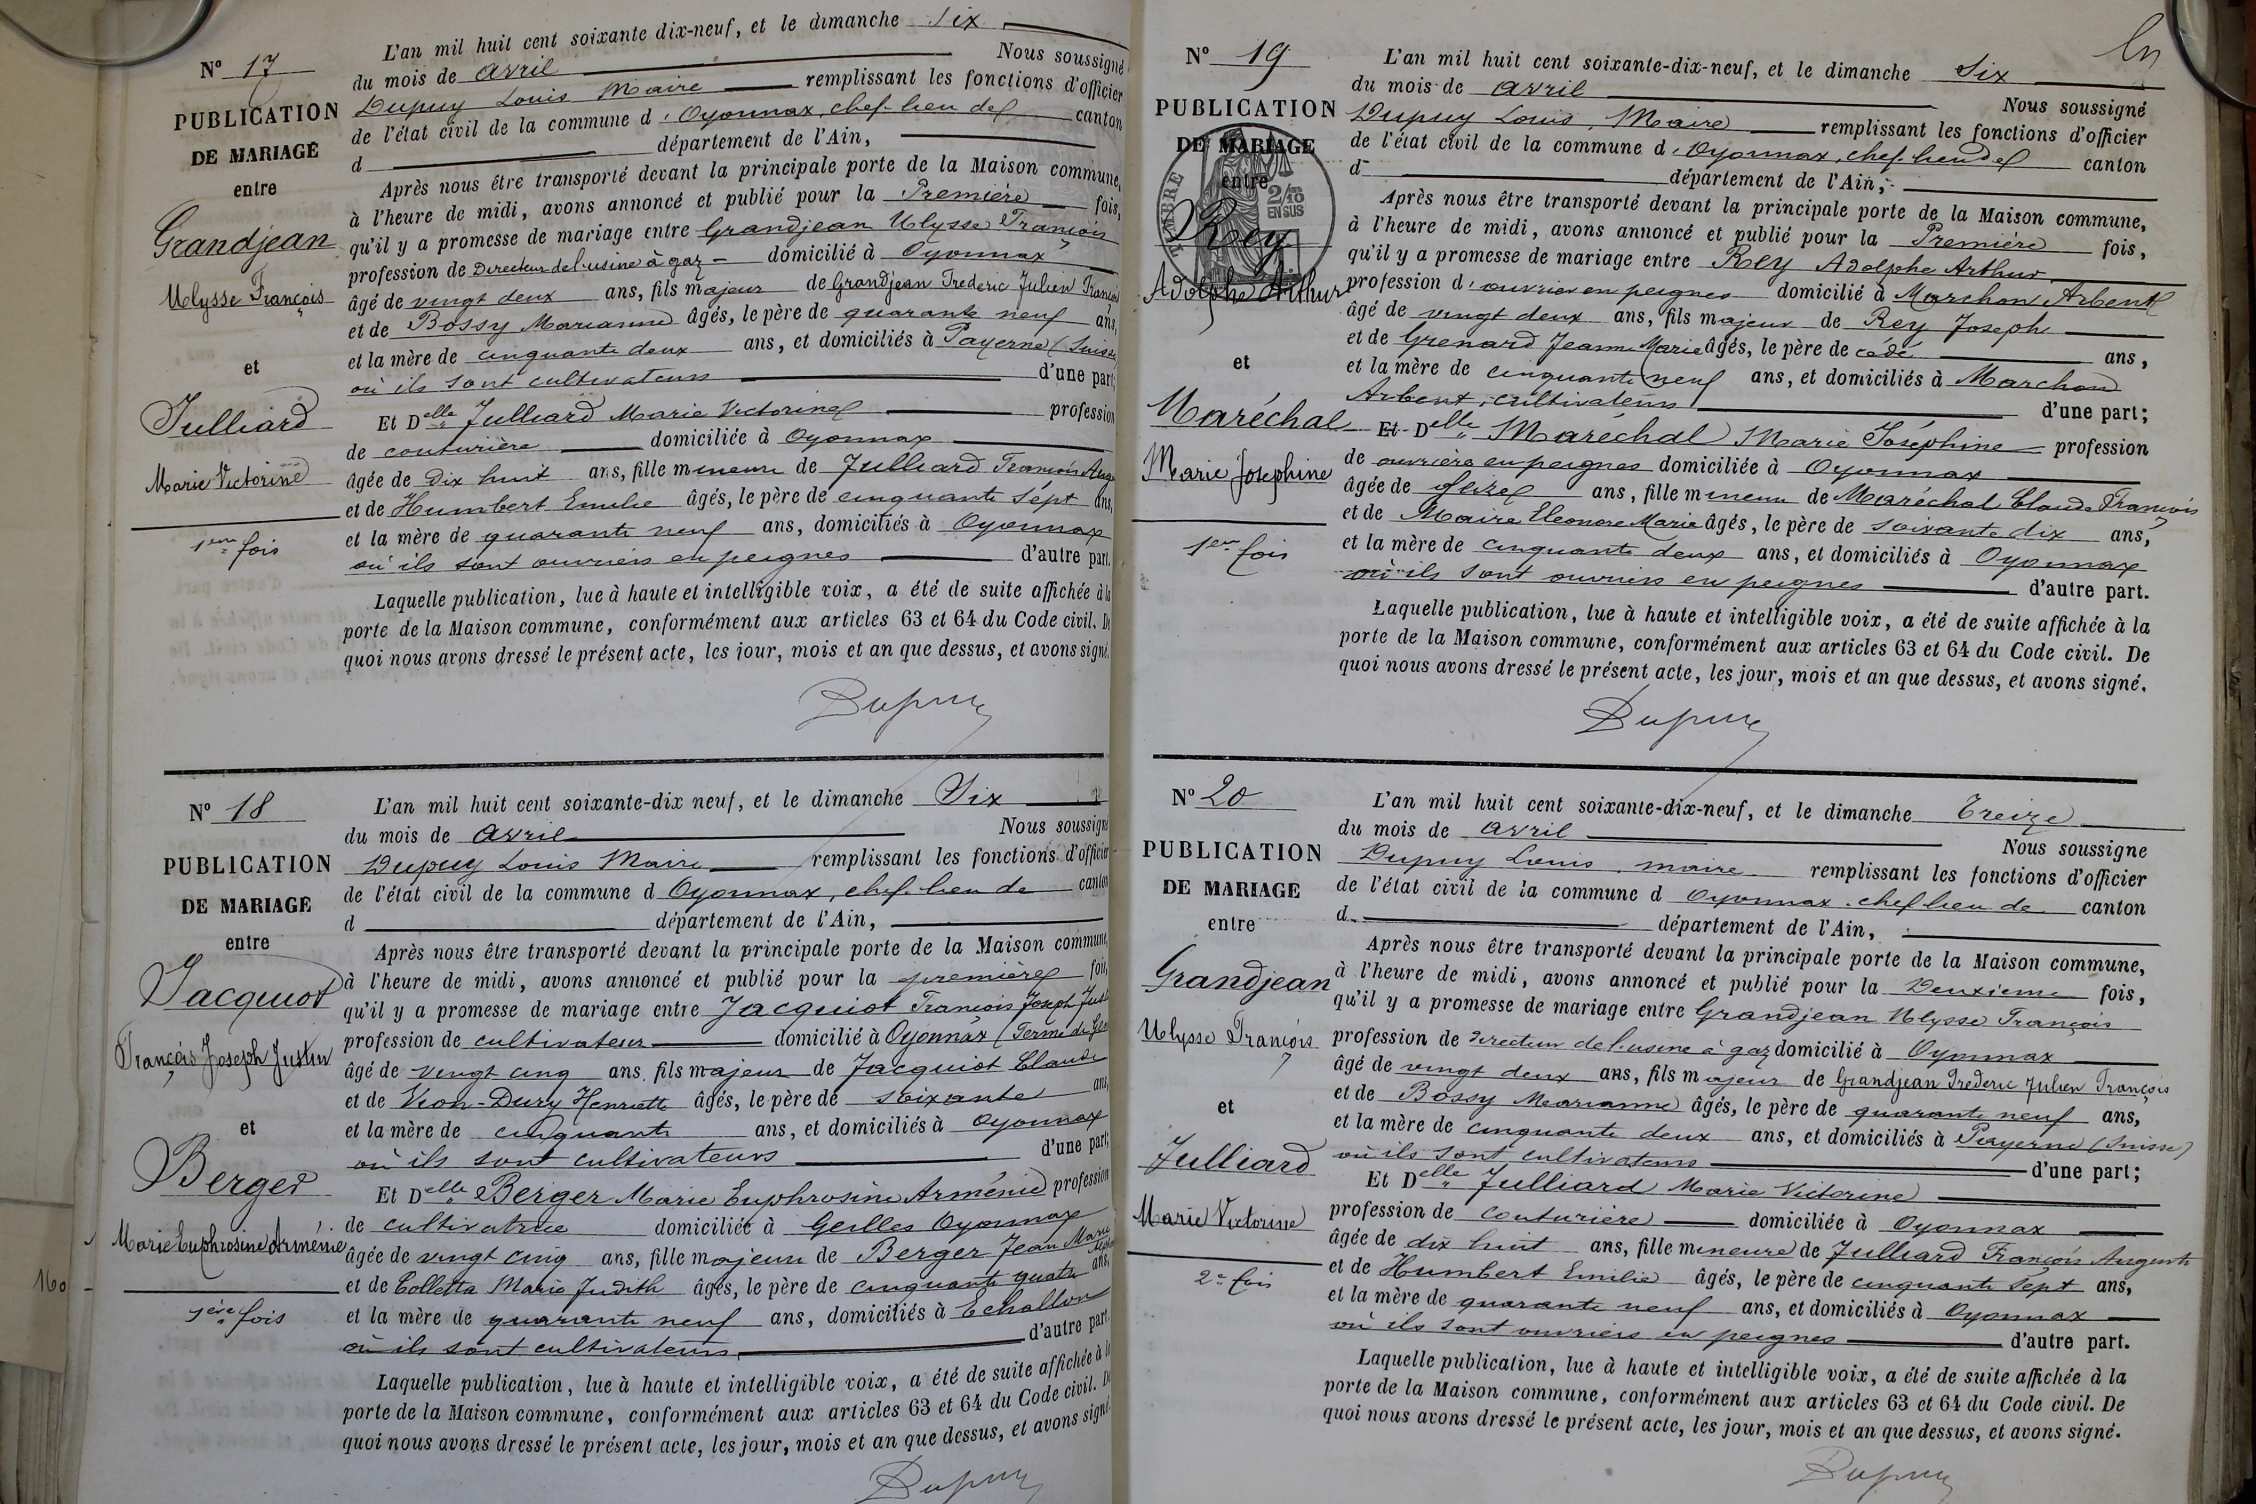 L'an mil huit cent soixante dix-neuf, et le dimanche Six
N° 17
du mois de avril Nous soussigné
PUBLICATION
DE MARIAGE
entre
Grandjean
Ulysse François
et
Julliard
Marie Victorine
1ere fois
Dupuy Louis Maire remplissant les fonctions d'officier
de l'état civil de la commune d'Oyonnax, chef-lieu de canton
d département de l'Ain,
Après nous être transporté devant la principale porte de la Maison commune,
à l'heure de midi, avons annoncé et publié pour la Première fois,
qu'il y a promesse de mariage entre Grandjean Ulysse François
profession de Directeur de l'usine à gaz domicilié à Oyonnax
âgé de vingt deux ans, fils majeur de Grandjean Frederic Julien François
et de Bossy Marianne âgés, le père de quarante neuf ans,
et la mère de cinquante deux ans, et domiciliés à Payerne (Suisse
où ils sont cultivateurs d'une part;
Et Delle Julliard Marie Victorine profession
de couturière domiciliée à Oyonnax
âgée de dix huit ans, fille mineure de Julliard François Aug
et de Humbert Emilie âgés, le père de cinquante sept ans,
et la mère de quarante neuf ans, domiciliés à Oyonnax
où ils sont ouvriers en peignes d'autre part.
Laquelle publication, lue à haute et intelligible voix, a été de suite affichée à la
porte de la Maison commune, conformément aux articles 63 et 64 du Code civil. De
quoi nous avons dressé le présent acte, les jour, mois et an que dessus, et avons signé.
Dupuy
N° 18
PUBLICATION
DE MARIAGE
entre
Jacquiot
François Joseph Justin
et
Berger
Marie Euphrosine Arménie
160
1ère fois
L'an mil huit cent soixante-dix neuf, et le dimanche Six
du mois de avril Nous soussigné
Dupuy Louis Maire remplissant les fonctions d'officier
de l'état civil de la commune d Oyonnax, chef-lieu de canton
d département de l'Ain,
Après nous être transporté devant la principale porte de la Maison commune,
à l'heure de midi, avons annoncé et publié pour la première fois,
qu'il y a promesse de mariage entre Jacquiot François Joseph Just
profession de cultivateur domicilié à Oyonnax (Ferme de
âgé de vingt cinq ans, fils majeur de Jacquiot Claude
et de Vion-Dury Henriette âgés, le père de soixante ans,
et la mère de cinquante ans, et domiciliés à Oyonnax
où ils sont cultivateurs d'une part;
Et Delle Berger Marie Euphrosine Arménie profession
de cultivatrice domiciliée à Geilles Oyonnax
âgée de vingt cinq ans, fille majeure de Berger Jean Marie
et de Colletta Marie Judith âgés, le père de cinquante quatre ans,
et la mère de quarante neuf ans, domiciliés à Echallon
où ils sont cultivateurs d'autre part.
Laquelle publication, lue à haute et intelligible voix, a été de suite affichée à la
porte de la Maison commune, conformément aux articles 63 et 64 du Code civil. De
quoi nous avons dressé le présent acte, les jour, mois et an que dessus, et avons signé.
Dupuy
N° 19
PUBLICATION
DE MARIAGE
entre
TIMBRE
2/10
EN SUS
Rey
Adolphe Arthur
et
Maréchal
Marie Josephine
1ere fois
L'an mil huit cent soixante-dix-neuf, et le dimanche Six
du mois de avril Nous soussigné
Dupuy Louis, Maire remplissant les fonctions d'officier
de l'état civil de la commune d'Oyonnax, chef-lieu de canton
d département de l'Ain,
Après nous être transporté devant la principale porte de la Maison commune,
à l'heure de midi, avons annoncé et publié pour la Première fois,
qu'il y a promesse de mariage entre Rey Adolphe Arthur
profession d'ouvrier en peignes domicilié à Marchon Arbent
âgé de vingt deux ans, fils majeur de Rey Joseph
et de Grenard Jeanne Marie âgés, le père de cédé ans,
et la mère de cinquante neuf ans, et domiciliés à Marchon
Arbent, cultivateurs d'une part;
Et Delle Maréchal Marie Joséphine profession
de ouvrière en peignes domiciliée à Oyonnax
âgée de seize ans, fille mineure de Maréchal Claude François
et de Maire Eleonore Marie âgés, le père de soixante dix ans,
et la mère de cinquante deux ans, et domiciliés à Oyonnax
où ils sont ouvriers en peignes d'autre part.
Laquelle publication, lue à haute et intelligible voix, a été de suite affichée à la
porte de la Maison commune, conformément aux articles 63 et 64 du Code civil. De
quoi nous avons dressé le présent acte, les jour, mois et an que dessus, et avons signé.
Dupuy
N° 20
PUBLICATION
DE MARIAGE
entre
Grandjean
Ulysse François
et
Julliard
Marie Victorine
2e fois
L'an mil huit cent soixante-dix-neuf, et le dimanche Treize
du mois de avril Nous soussigne
Dupuy Louis, maire remplissant les fonctions d'officier
de l'état civil de la commune d Oyonnax, chef lieu de canton
d département de l'Ain,
Après nous être transporté devant la principale porte de la Maison commune,
à l'heure de midi, avons annoncé et publié pour la Deuxieme fois,
qu'il y a promesse de mariage entre Grandjean Ulysse François
profession de Directeur de l'usine à gaz domicilié à Oyonnax
âgé de vingt deux ans, fils majeur de Grandjean Frederic Julien François
et de Bossy Marianne âgés, le père de quarante neuf ans,
et la mère de cinquante deux ans, et domiciliés à Payerne (Suisse)
où ils sont cultivateurs d'une part;
Et Delle Julliard Marie Victorine
profession de couturière domiciliée à Oyonnax
âgée de dix huit ans, fille mineure de Julliard François Auguste
et de Humbert Emilie âgés, le père de cinquante sept ans,
et la mère de quarante neuf ans, et domiciliés à Oyonnax
où ils sont ouvriers en peignes d'autre part.
Laquelle publication, lue à haute et intelligible voix, a été de suite affichée à la
porte de la Maison commune, conformément aux articles 63 et 64 du Code civil. De
quoi nous avons dressé le présent acte, les jour, mois et an que dessus, et avons signé.
Dupuy